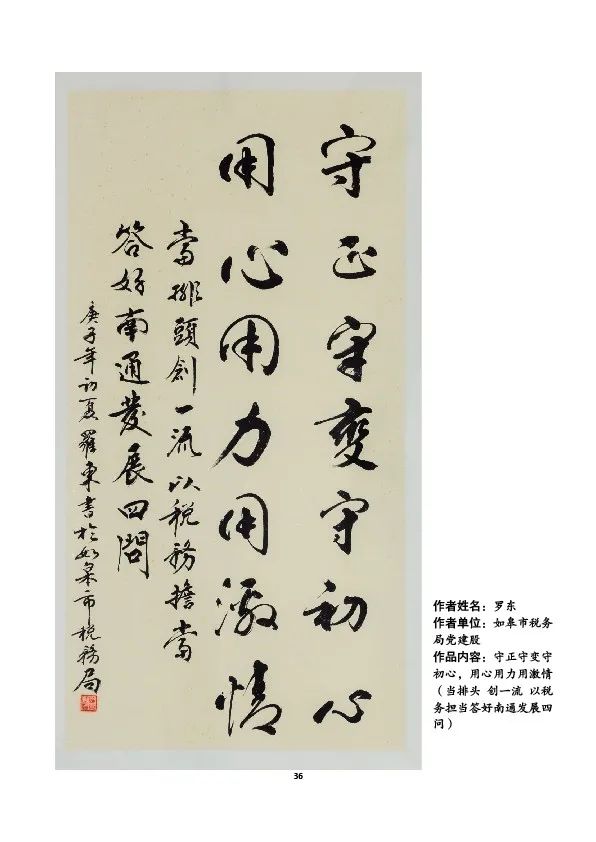 守正守變守初心
用心用力用激情
當排頭創一流以税務擔當
答好南通發展四問
庚子年初夏羅東書於如皋市税務局
作者姓名：罗东
作者单位：如皋市税务
局党建股
作品内容：守正守变守
初心，用心用力用激情
（当排头 创一流 以税
务担当答好南通发展四
问）
36